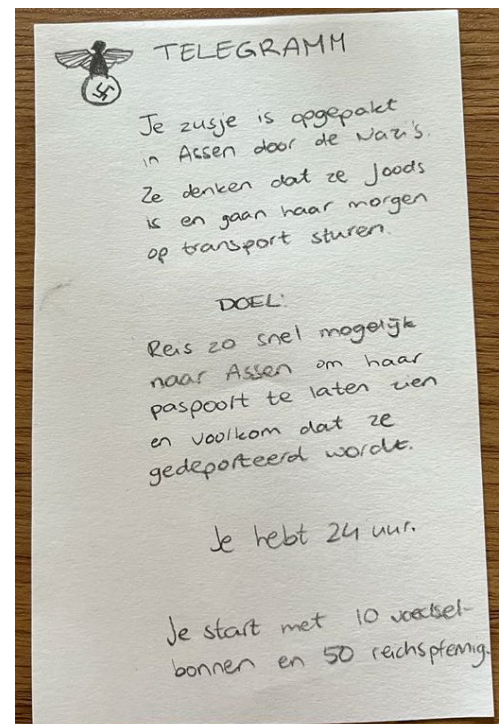 TELEGRAMM
Je zusje is opgepakt
in Assen door de Nazi's.
Ze denken dat ze Joods
is en gaan haar morgen
op transport sturen.
DOEL:
Reis zo snel mogelijk
naar Assen om haar
paspoort te laten zien
en voorkom dat ze
gedeporteerd wordt.
Je hebt 24 uur.
Je start met 10 voedsel-
bonnen en 50 reichspfennig.